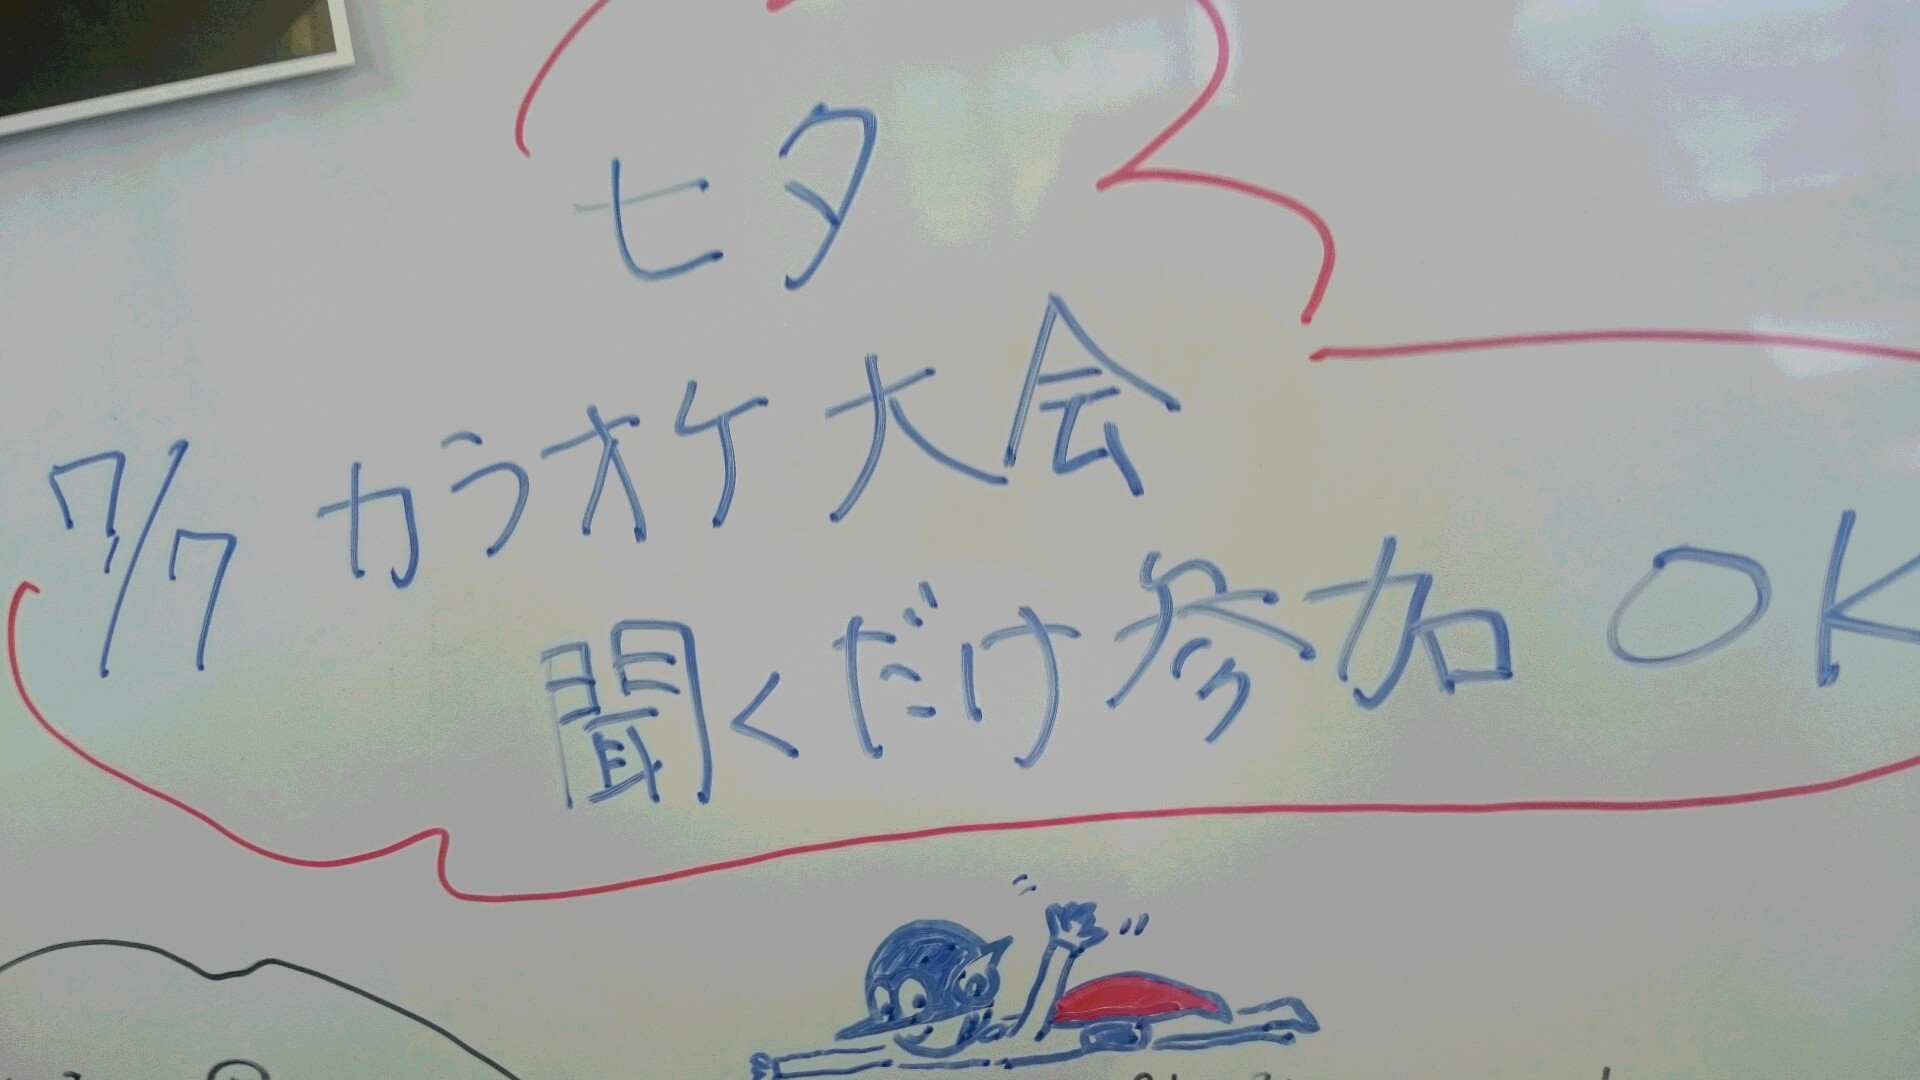 七夕
7/7 カラオケ大会
聞くだけ参加 OK